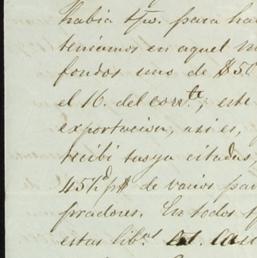 habia tpo. para ha
teniamos en aquel m
fondos uno de $50
el 16. del corrte., este
exportacion, asi es,
recibi suya citadas,
de varios par
pradores. En todos
estas lib.as